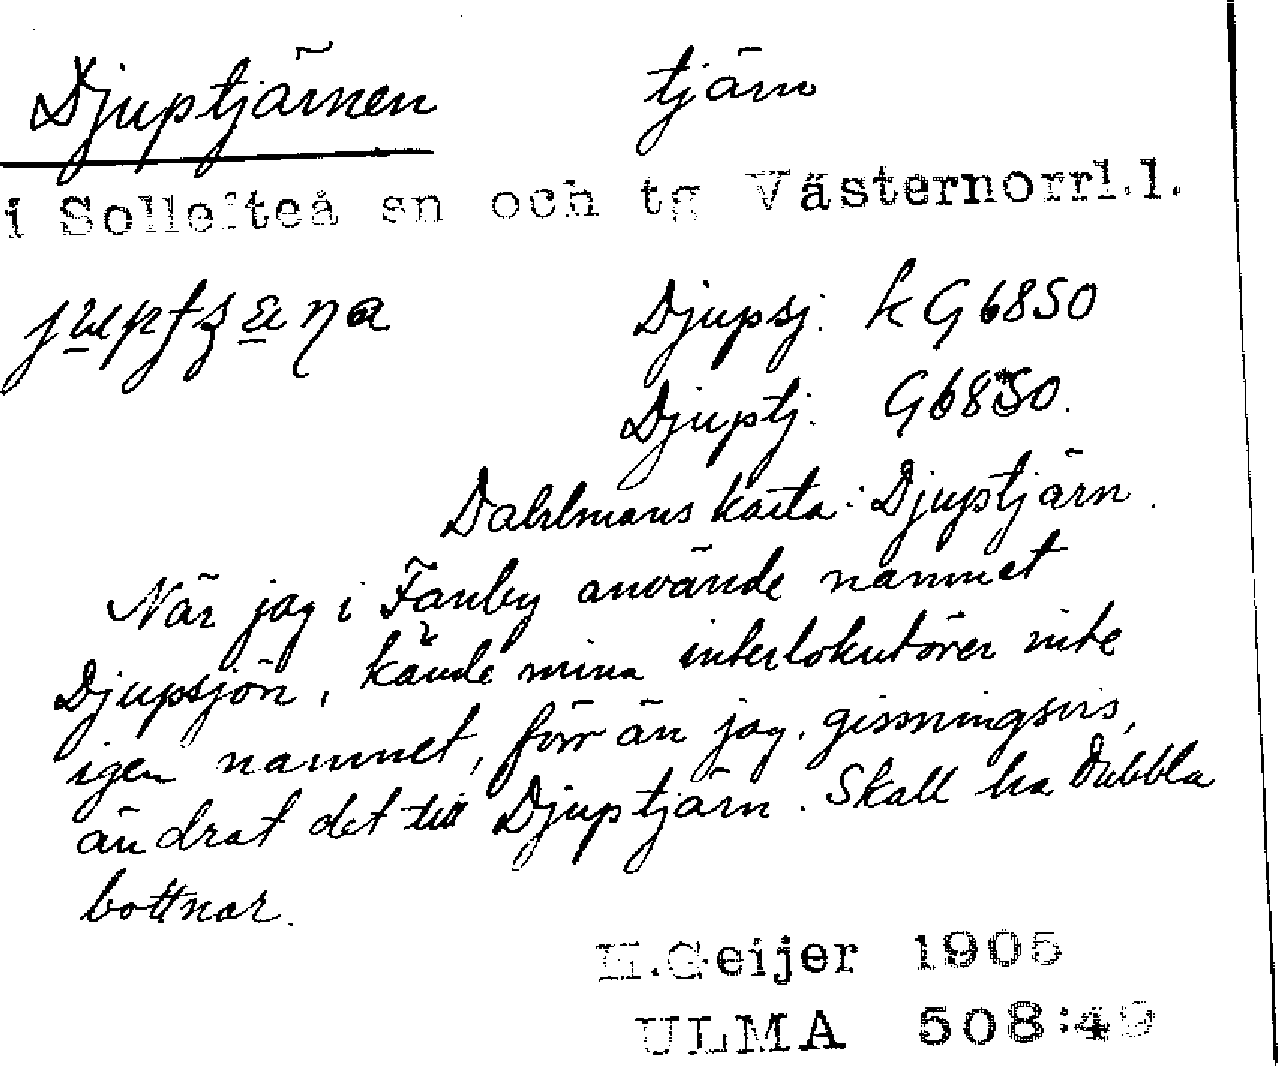 Djuptjärnen tjärn
i Sollefteå sn och tg Västernorrl.l.
Djupsj. k G6850
Djuptj. G6850.
Dahlmans karta: Djuptjärn.
När jag i Fanby använde namnet
Djupsjön, kände mina interlokutörer inte
igen namnet, förr än jag, gissningsvis,
ändrat det till Djuptjärn. Skall ha dubbla
bottnar.
H.Geijer 1905
ULMA 508:49